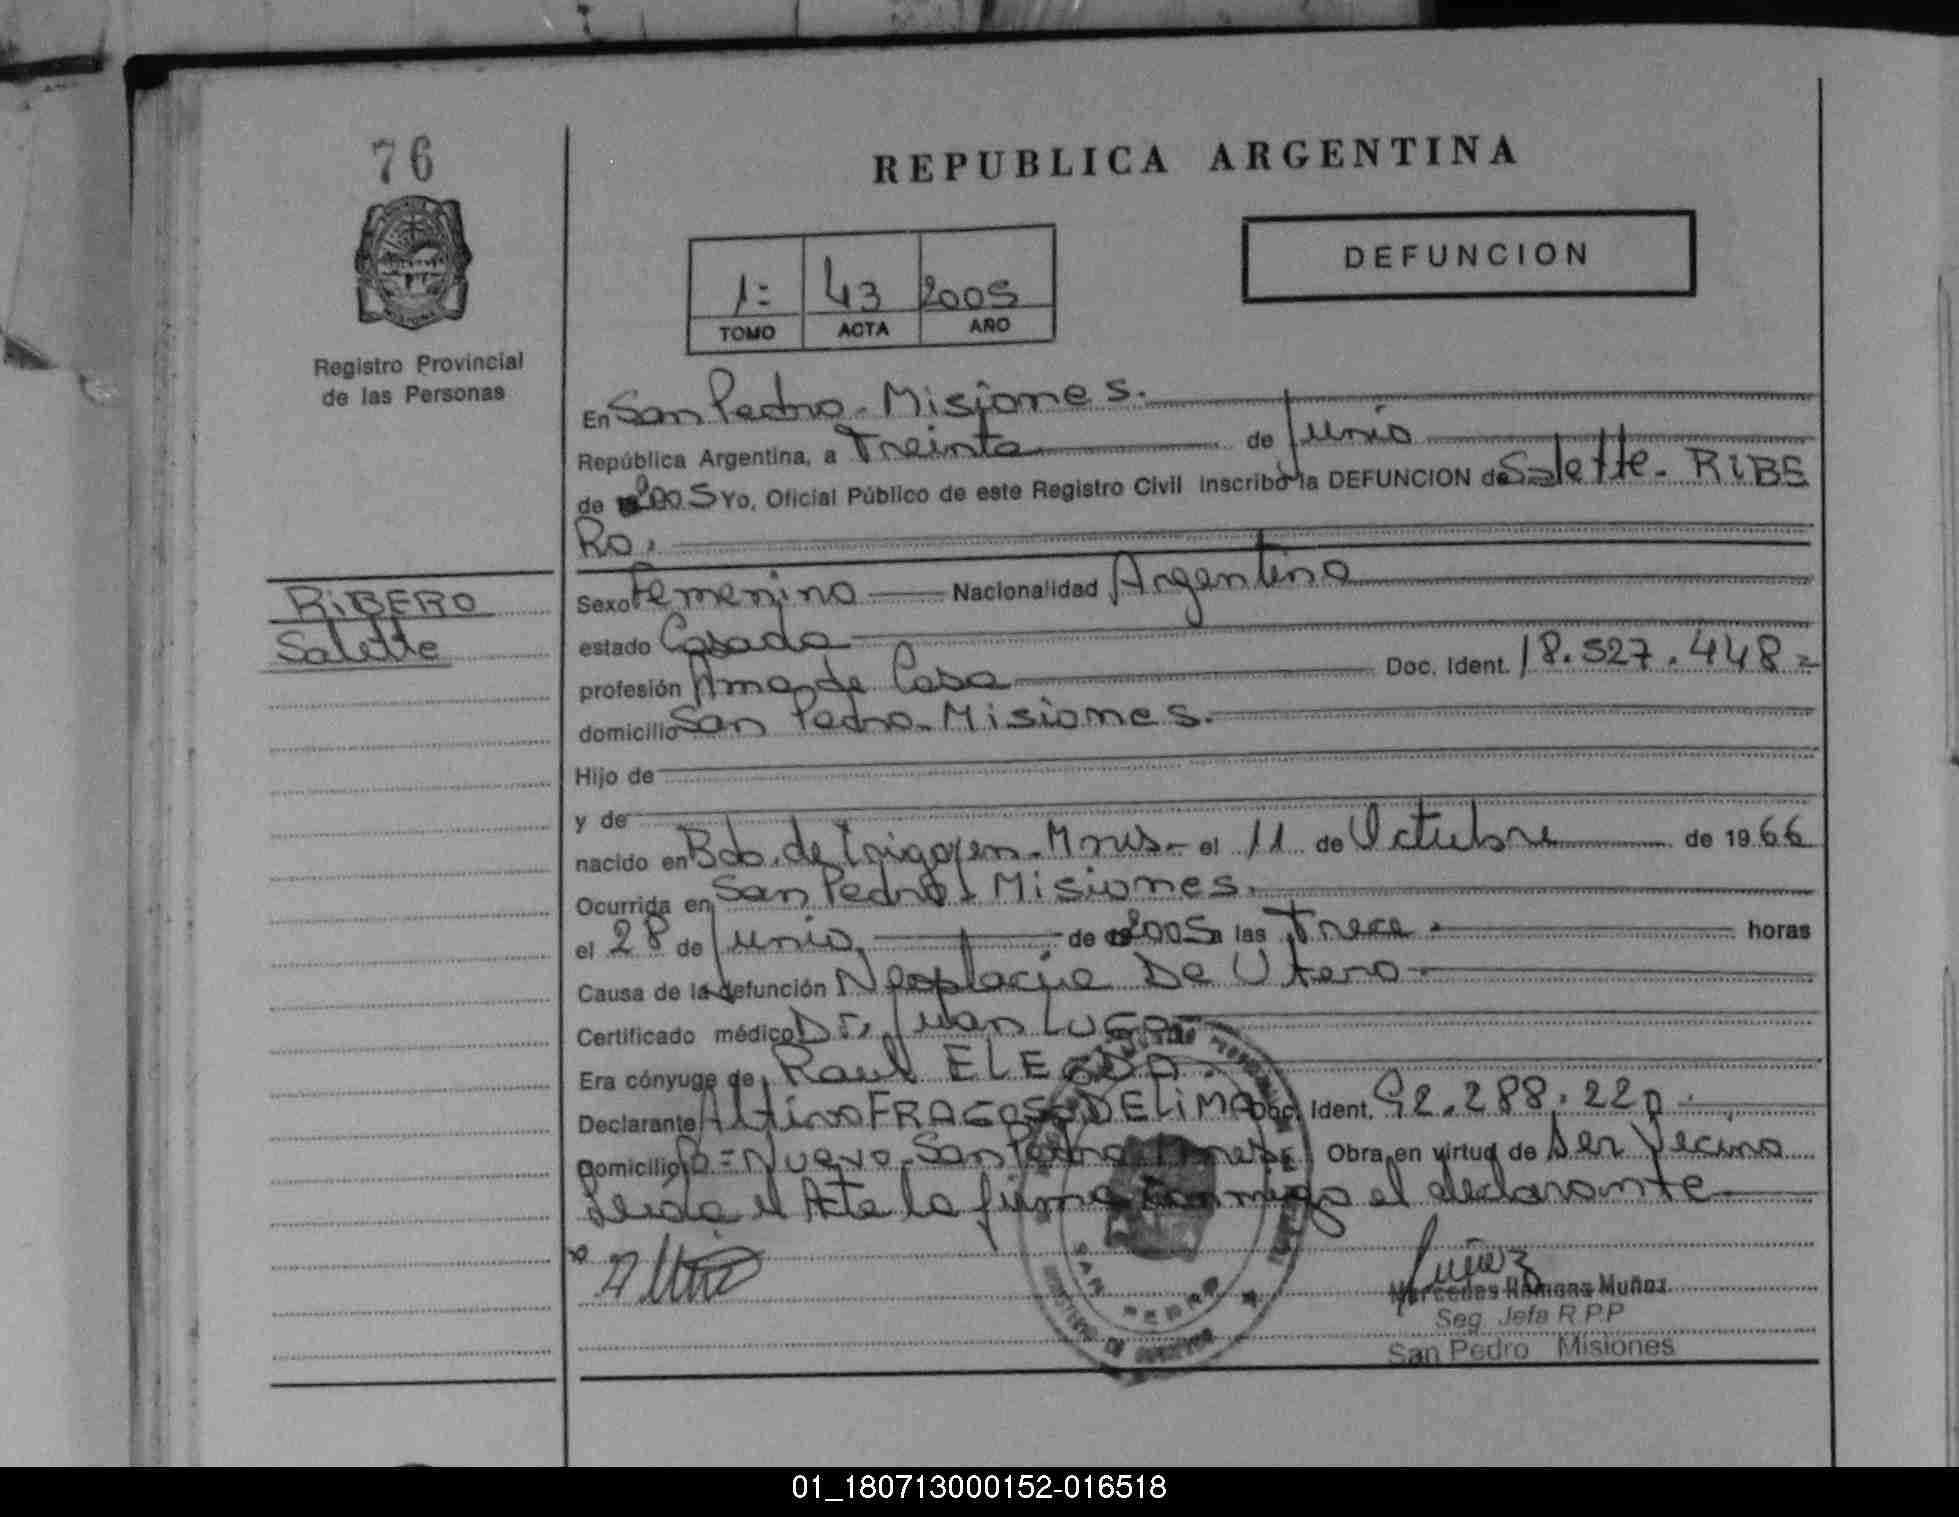 76
REPUBLICA ARGENTINA
DEFUNCION
1= 43 2005
TOMO ACTA AÑO
Registro Provincial
de las Personas
En San Pedro - Misiones.
República Argentina, a Treinta de Junio
de 2005 Yo, Oficial Público de este Registro Civil inscribo la DEFUNCION de Salette - RIBE
RO.
RIBERO
Salette
Sexo Femenino Nacionalidad Argentina
estado Casada
profesión Ama de Casa Doc. Ident. 18.527.448=
domicilio San Pedro - Misiones.
Hijo de
y de
nacido en Bdo. de Irigoyen - Mnes - el 11 de Octubre de 1966
Ocurrida en San Pedro - Misiones.
el 28 de Junio de 2005 a las Trece horas
Causa de la defunción De Utero
Certificado médico Dr. Juan
Era cónyuge de Raul
Declarante Altivo FRAGOSO DE LIMA Doc. Ident. 92.288.220
Domicilio B= Nuevo - San Pedro Mnes. Obra en virtud de Ser Vecino
Leida el Acta la firma conmigo el declarante
SAN PEDRO
Mercedes Ramona Muñoz
Seg. Jefa R.P.P
San Pedro Misiones
01_180713000152-016518